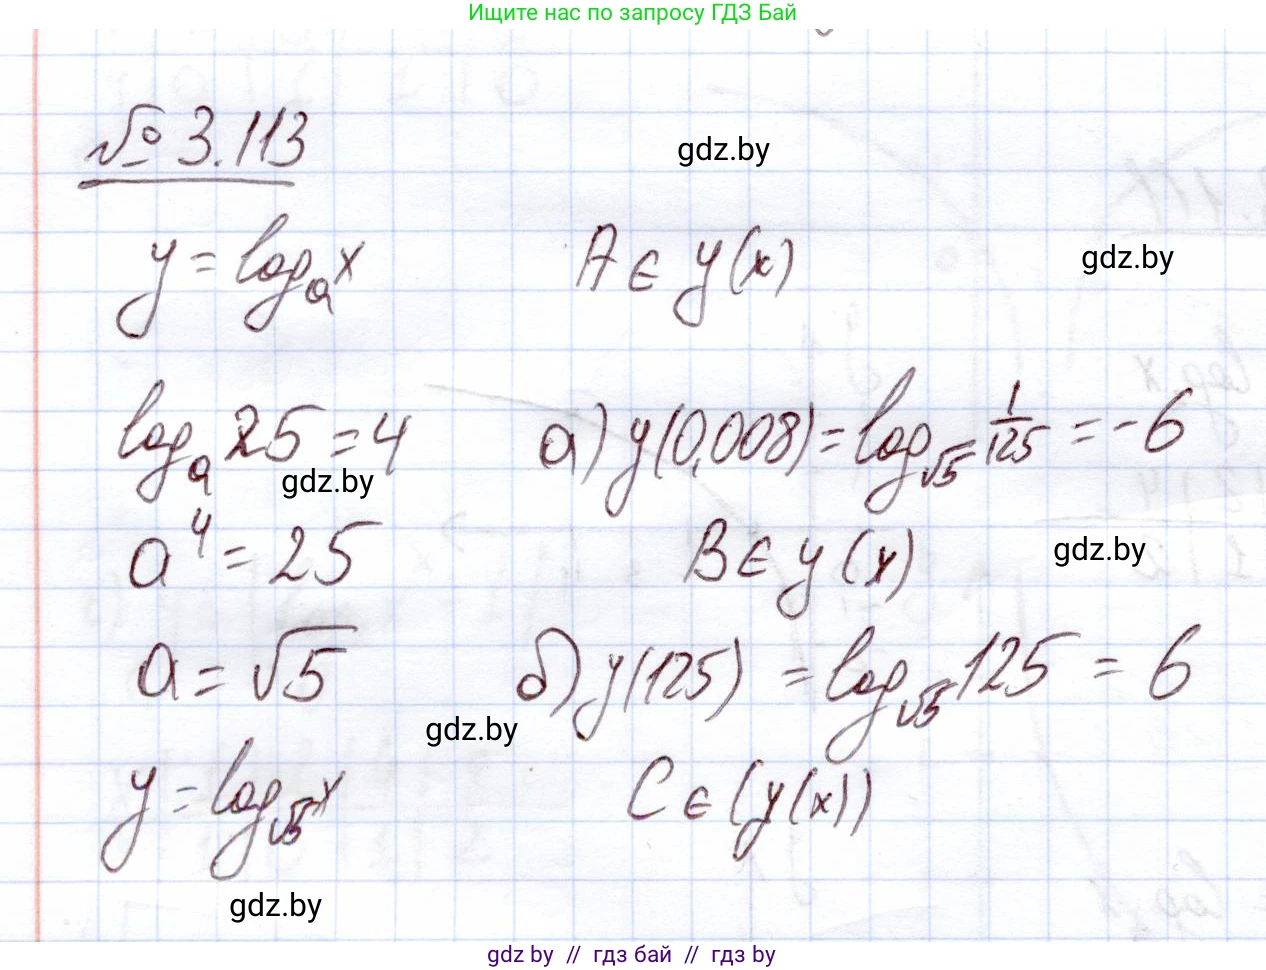 Ищите нас по запросу ГДЗ Бай
№ 3.113
gdz.by
y = logₐx
A ∈ y(x)
gdz.by
logₐ25 = 4
а) y(0,008) = log_√5 1/125 = -6
gdz.by
a⁴ = 25
B ∈ y(x)
gdz.by
a = √5
б) y(125) = log_√5 125 = 6
gdz.by
y = log_√5 x
C ∈ (y(x))
gdz.by
gdz by // гдз бай // гдз by